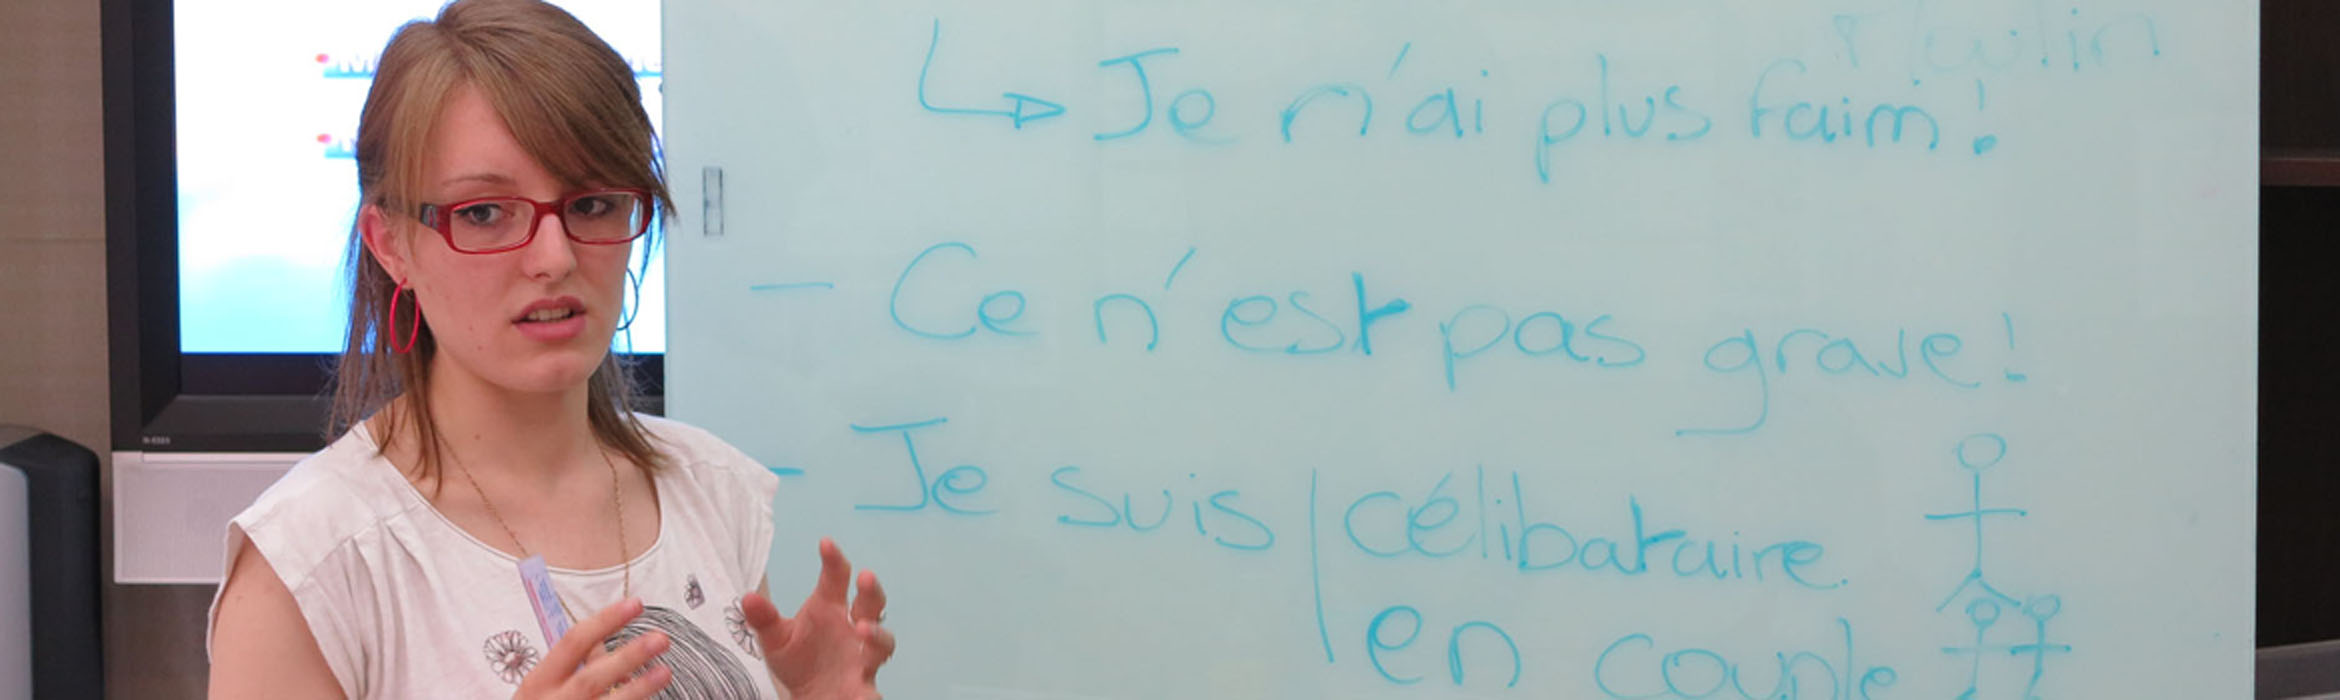 Je n'ai plus faim!
- Ce n'est pas grave!
- Je suis célibataire
en couple